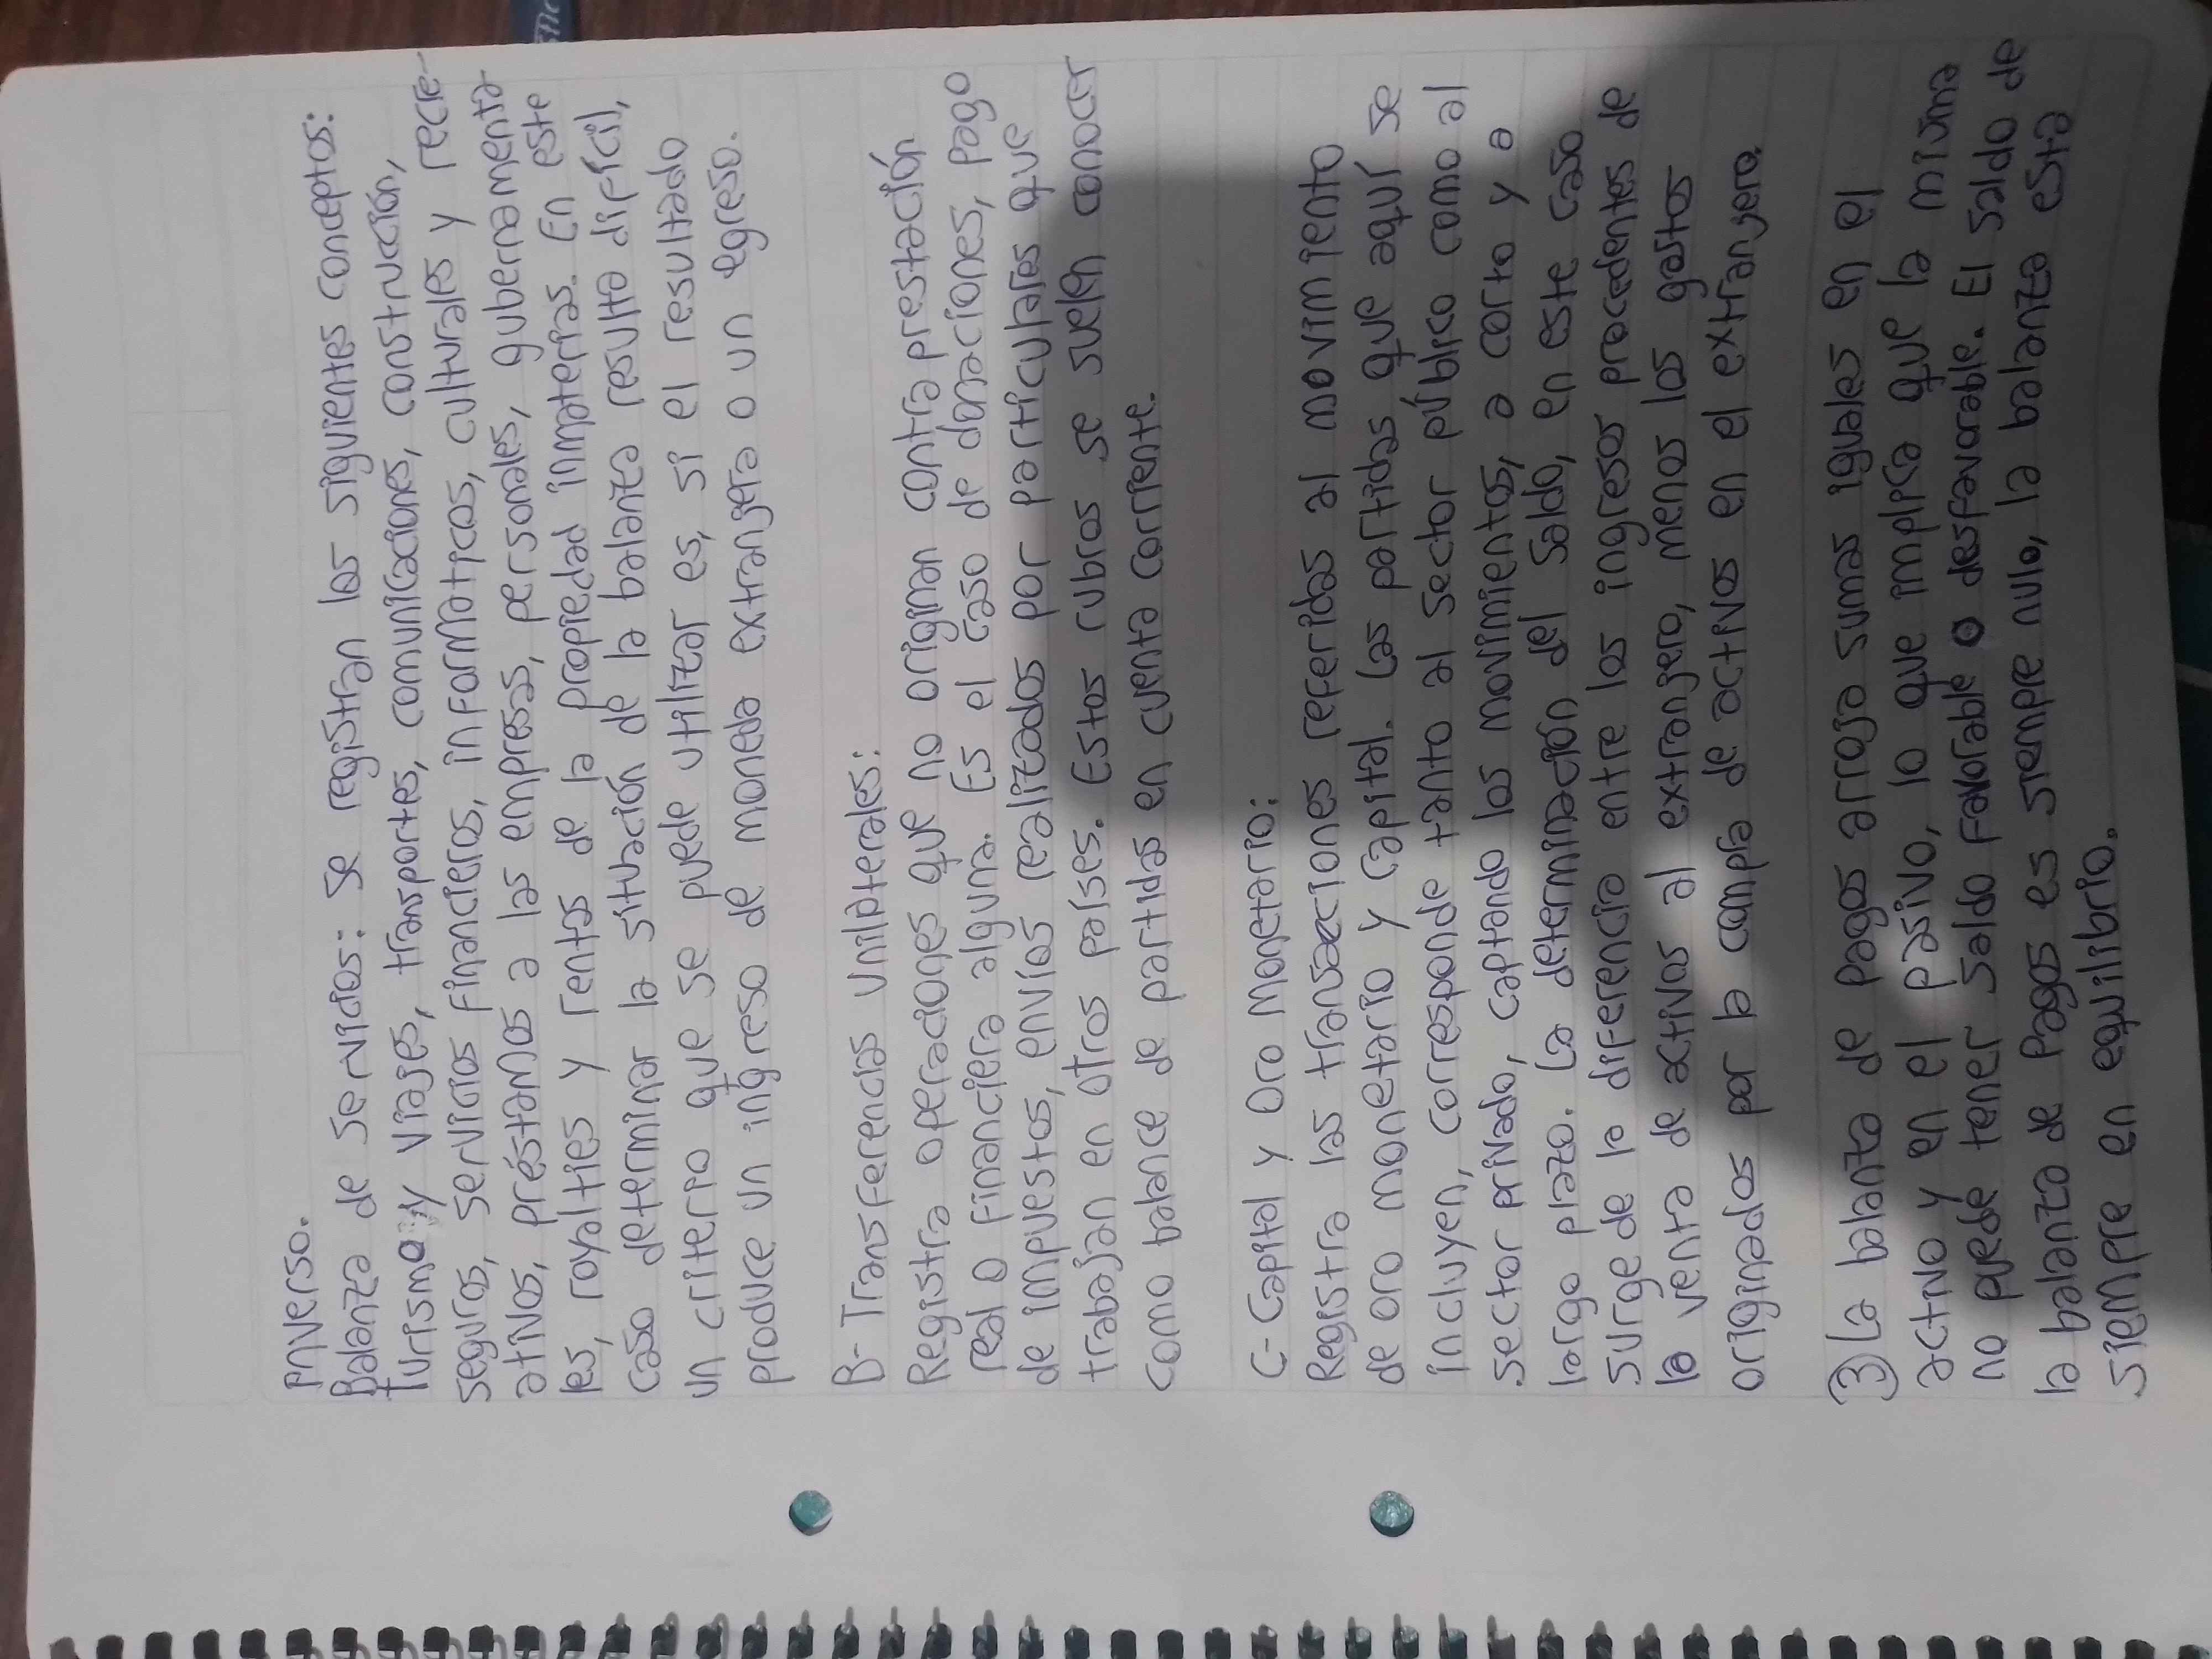 inverso.
Balanza de servicios: se registran los siguientes conceptos:
turismo y viajes, transportes, comunicaciones, construcción,
seguros, servicios financieros, informaticos, culturales y recre-
ativos, préstamos a las empresas, personales, gubernamenta
les, royalties y rentas de la propiedad inmaterias. En este
caso determinar la situación de la balanza resulta difícil,
un criterio que se puede utilizar es, si el resultado
produce un ingreso de moneda extranjera o un egreso.
B- Transferencias unilaterales:
Registra operaciones que no originan contra prestación
real o financiera alguna. Es el caso de donaciones, pago
de impuestos, envíos realizados por particulares que
trabajan en otros países. Estos rubros se suelen conocer
como balance de partidas en cuenta corriente.
C- Capital y Oro Monetario:
Registra las transacciones referidas al movimiento
de oro monetario y capital. Las partidas que aquí se
incluyen, corresponde tanto al sector público como al
sector privado, captando los movimientos, a corto y a
largo plazo. La determinación del saldo, en este caso
surge de la diferencia entre los ingresos procedentes de
la venta de activos al extranjero, menos los gastos
originados por la compra de activos en el extranjero.
3 La balanza de pagos arroja sumas iguales en el
activo y en el pasivo, lo que implica que la misma
no puede tener saldo favorable o desfavorable. El saldo de
la balanza de Pagos es siempre nulo, la balanza esta
siempre en equilibrio.